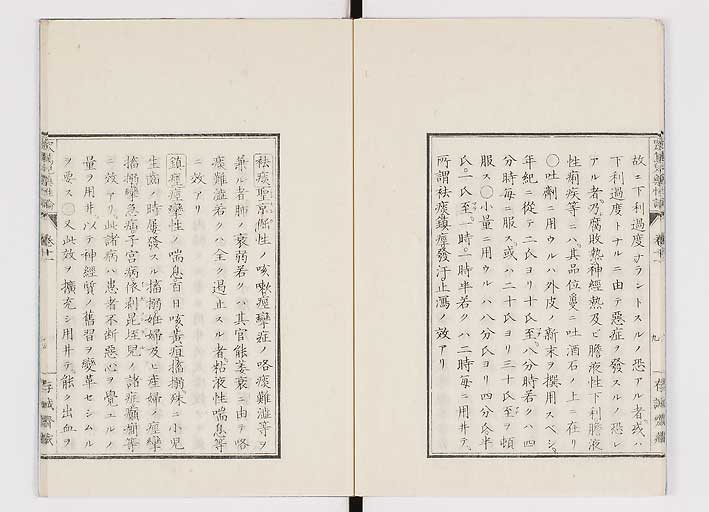 故ニ下利過度ナラントスルノ恐アル者或ハ
下利過度トナルニ由テ惡症ヲ發スルノ恐レ
アル者乃腐敗熱神經熱及ヒ膽液性下利膽液
性痢疾等ニハ其品位ニ吐酒石ノ上ニ在リ
○吐劑ニ用ウルハ外皮ノ新末ヲ撰用スベシ
年紀ニ從テ二氏ヨリ十氏至八分時若クハ四
分時每ニ服ス或ハ二十氏ヨリ三十氏至ヲ頓
服ス○小量ニ用ウルハ八分氏ヨリ四分氏半
氏一氏至一時二時半若クハ二時每ニ用井テ
所謂祛痰鎮痙發汗止瀉ノ效アリ
祛痰聖京衝性ノ咳嗽痙攣症ノ咯痰難澁等ヲ
兼ル者肺ノ衰弱若クハ其官能萎衰ニ由テ咯
痰難澁若クハ全ク遏止スル者粘液性喘息等
ニ效アリ
鎮痙痙攣性ノ喘息百日咳黃疸搐搦殊ニ小兒
生齒ノ時屢發スル搐搦妊婦及ヒ産婦ノ痙攣
搐搦攣急痛子宮病依剝昆垤兒ノ諸症癲癇等
ニ效アリ此諸病ハ患者不斷惡心ヲ覺エルノ
量ヲ用井以テ神經質ノ舊習ヲ變革セシムル
ヲ要ス○又此效ヲ擴充シ用井テ能ク出血ヲ